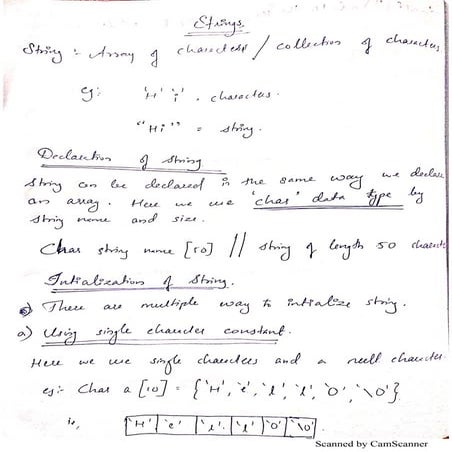 Strings
String :- Array of characters / collection of characters
eg:- 'H' 'i' - characters.
"Hi" = string.
Declaration of string
String can be declared in the same way we declare
an array. Here we use 'char' data type by
string name and size.
Char string name [10] // string of length 50 characte
Intialization of String.
There are multiple way to intialize string.
a) Using single character constant.
Here we use single characters and a null character
eg:- Char a [10] = {'H', 'e', 'l', 'l', 'O', '\O'}
is, 'H' 'e' 'l' 'l' 'O' '\O'
Scanned by CamScanner